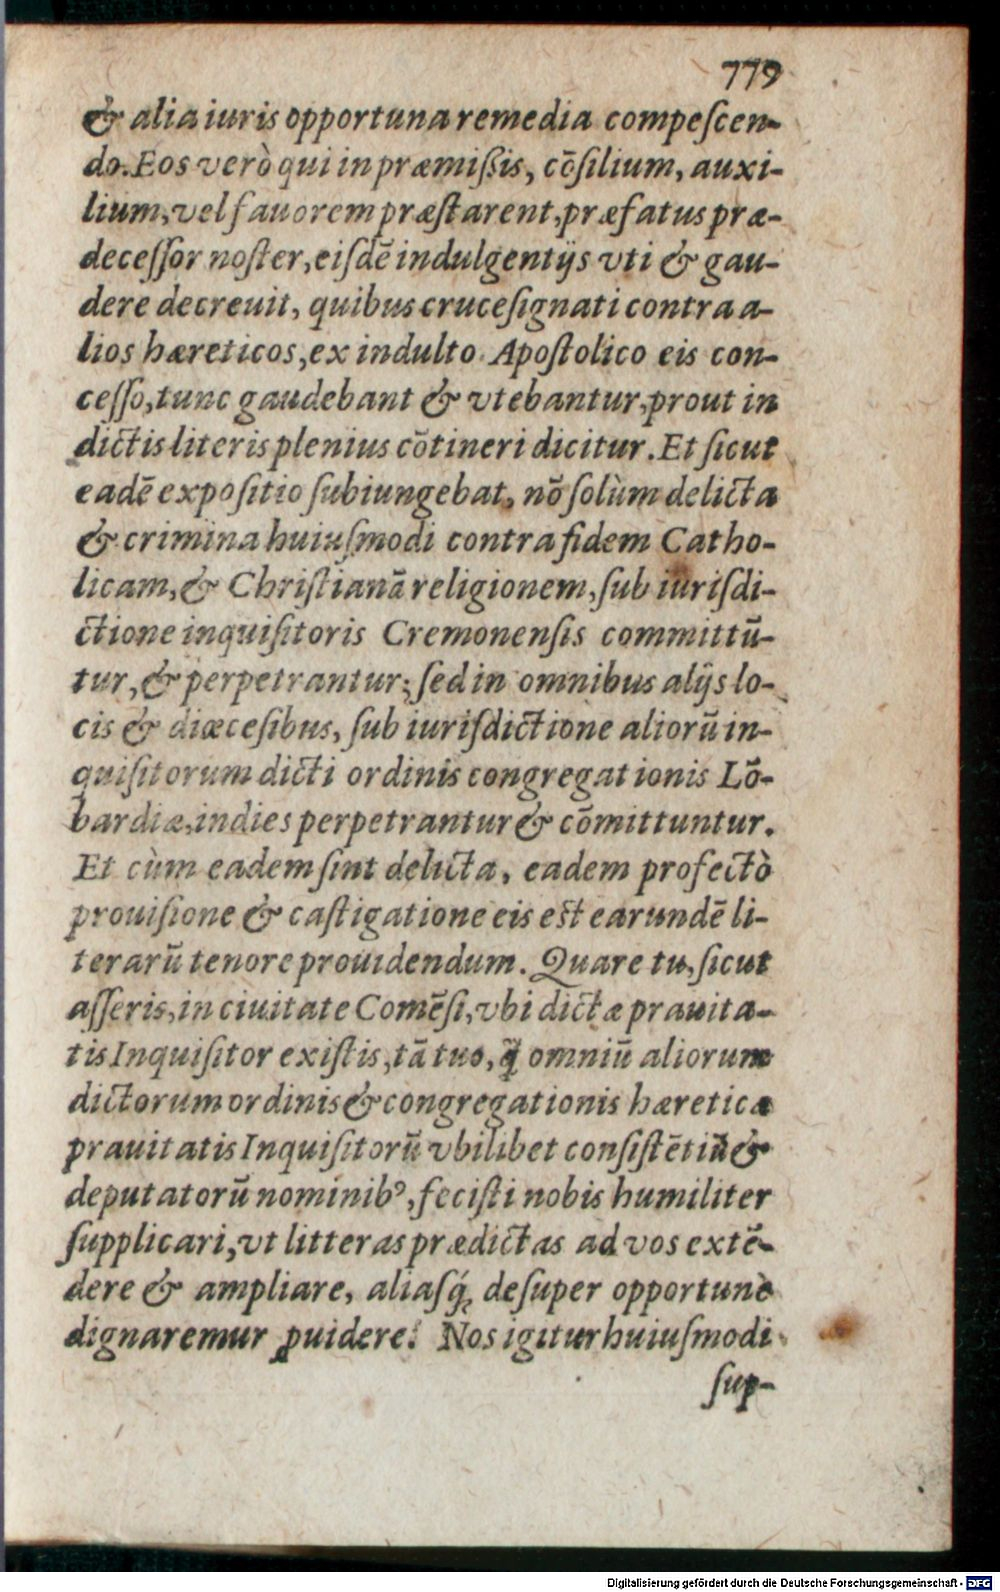 779
& alia iuris opportuna remedia compeſcen-
do. Eos verò qui in præmiſsis, cōſilium, auxi-
lium, vel fauorem præſtarent, præfatus præ-
deceſſor noſter, eiſdē indulgentijs vti & gau-
dere decreuit, quibus cruceſignati contra a-
lios hæreticos, ex indulto Apoſtolico eis con-
ceſſo, tunc gaudebant & vtebantur, prout in
dictis literis plenius cōtineri dicitur. Et ſicut
eadē expoſitio ſubiungebat, nō ſolùm delicta
& crimina huiuſmodi contra fidem Catho-
licam, & Chriſtianā religionem, ſub iuriſdi-
ctione inquiſitoris Cremonenſis committū-
tur, & perpetrantur; ſed in omnibus alijs lo-
cis & diœceſibus, ſub iuriſdictione aliorū in-
quiſitorum dicti ordinis congregationis Lō-
bardiæ, indies perpetrantur & cōmittuntur.
Et cùm eadem ſint delicta, eadem profectò
prouiſione & caſtigatione eis eſt earundē li-
terarū tenore prouidendum. Quare tu, ſicut
aſſeris, in ciuitate Comēſi, vbi dictæ prauita-
tis Inquiſitor exiſtis, tā tuo, q̄ omniū aliorum
dictorum ordinis & congregationis hæreticæ
prauitatis Inquiſitorū vbilibet conſiſtētiū &
deputatorū nominibꝰ, feciſti nobis humiliter
ſupplicari, vt litteras prædictas ad vos extē-
dere & ampliare, aliaſq́; deſuper opportunè
dignaremur ꝓuidere. Nos igitur huiuſmodi
ſup-
Digitalisierung gefördert durch die Deutsche Forschungsgemeinschaft - DFG